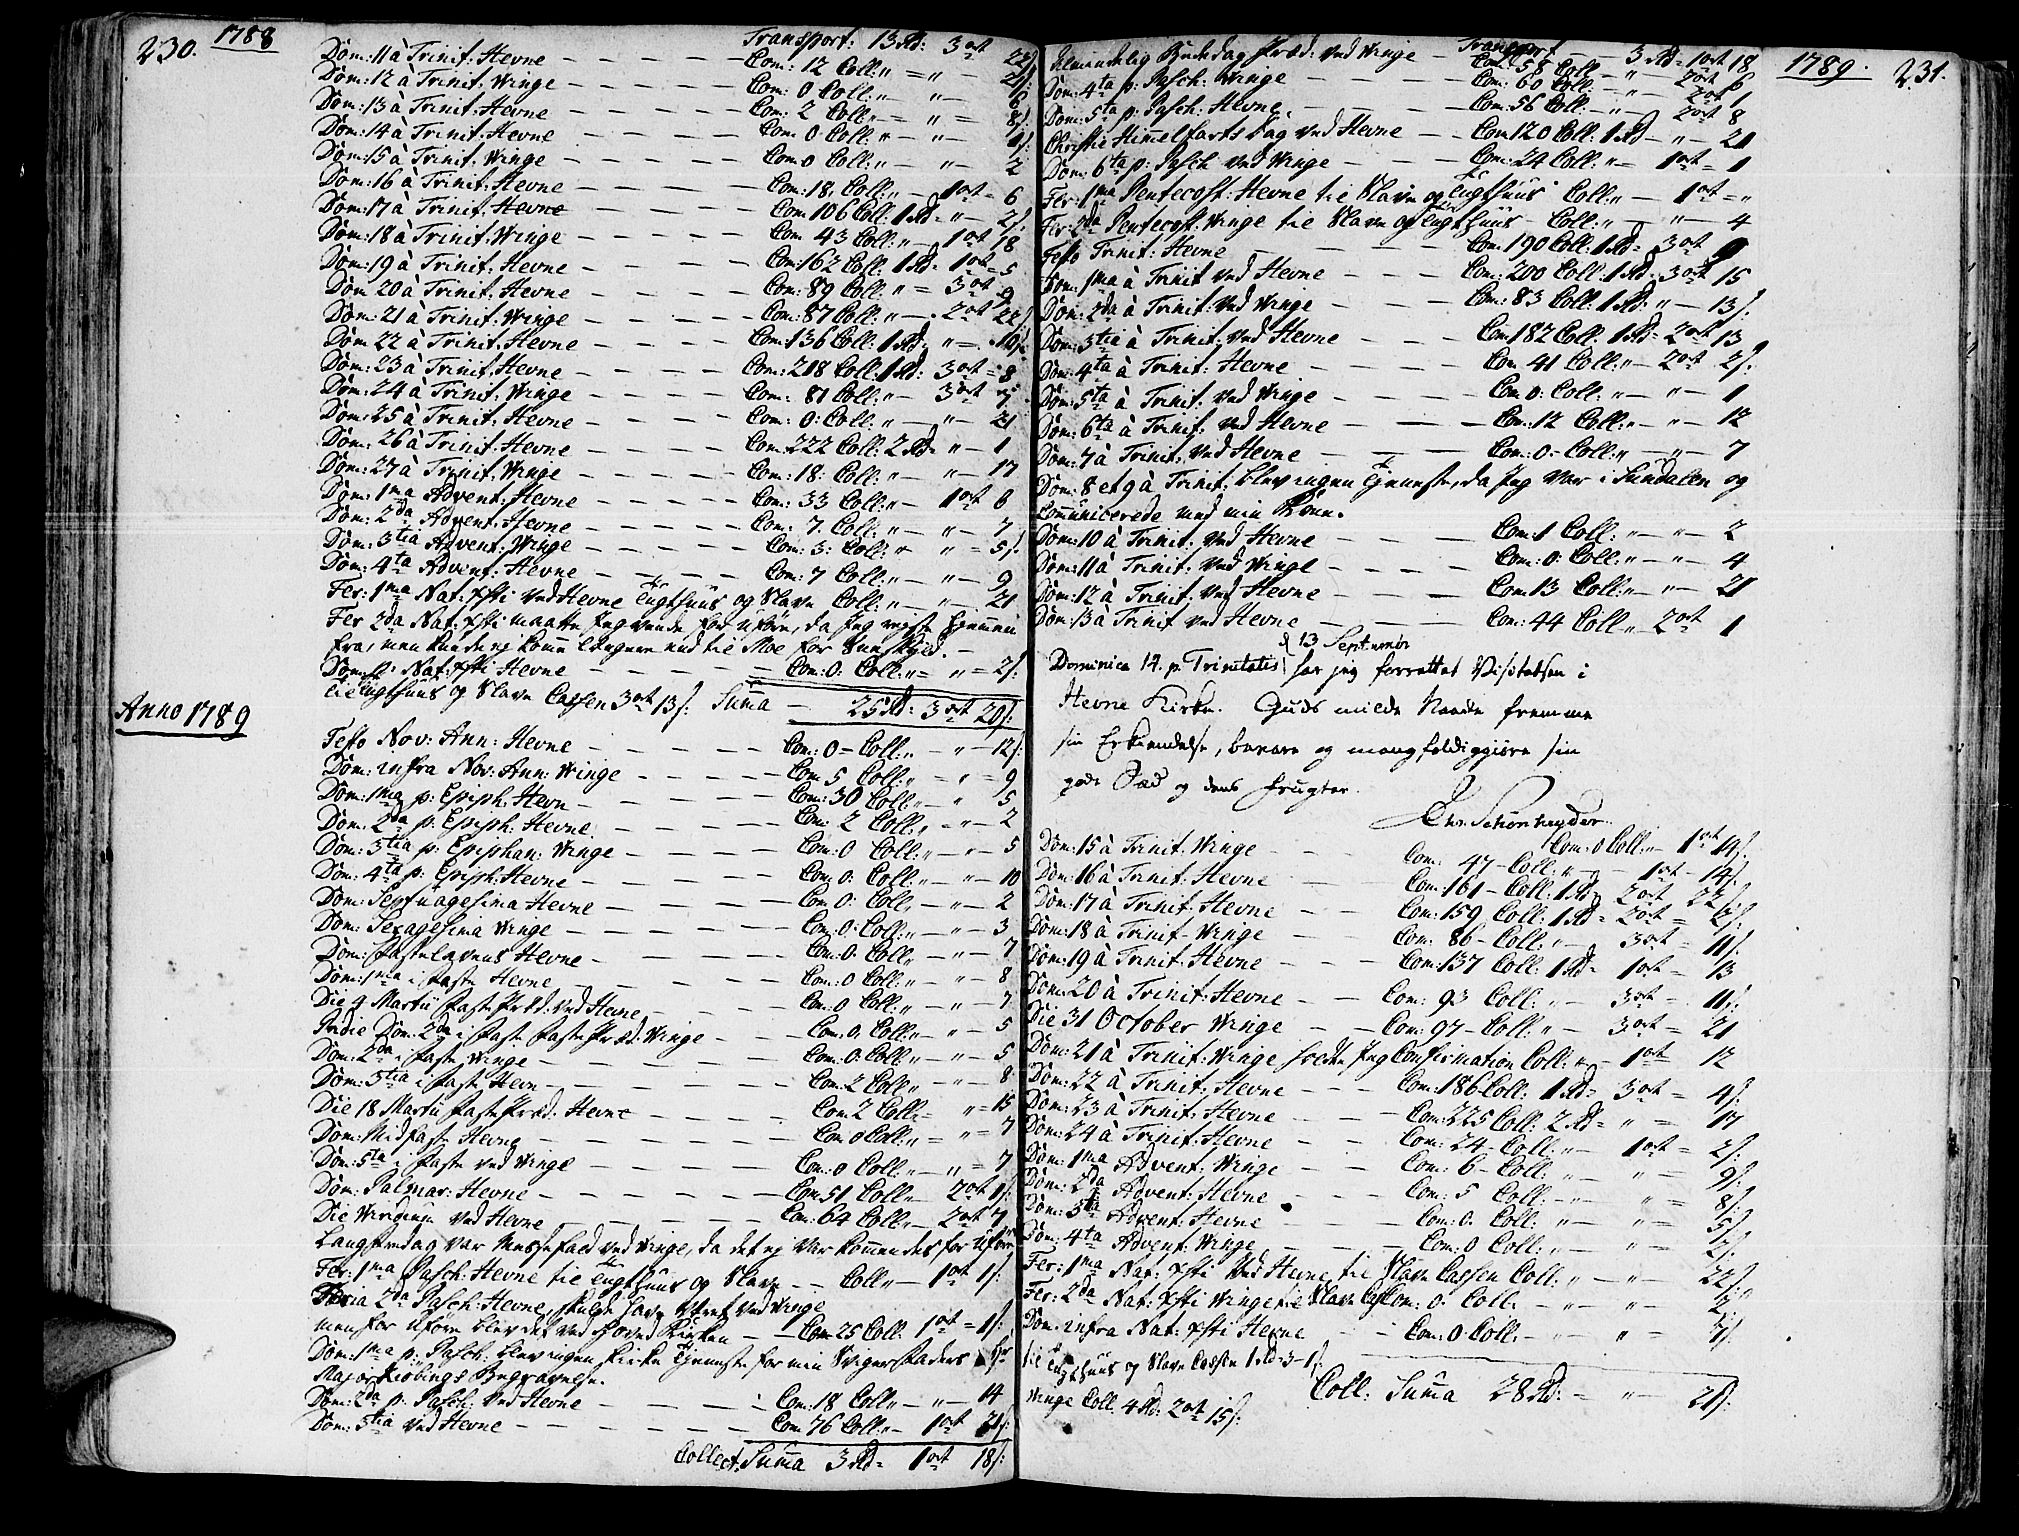 230. 1788
Transport: 13 Rd: 3 ort 22
Dom: 11 à Trinit: Hevne — Com: 12 Coll: „ = „ — 21
Dom: 12 à Trinit: Winge — Com: 0 Coll: „ „ — 6
Dom: 13 à Trinit: Hevne — Com: 2 Coll: „ = „ = 8
Dom: 14 à Trinit: Hevne — Com: 0 Coll: „ — „ —
Dom: 15 à Trinit: Winge — Com: 0 Coll: „ — „ — 2
Dom: 16 à Trinit: Hevne — Com: 18 Coll: „ — 1 ort = 6
Dom: 17 à Trinit: Hevne — Com 106 Coll: 1 Rd = „ — 2 s:
Dom: 18 à Trinit: Winge — Com 43 Coll: „ — 1 ort 18
Dom: 19 à Trinit: Hevne — Com: 162 Coll: 1 Rd = 1 ort = 5
Dom 20 à Trinit: Hevne — Com: 89 Coll: „ = 3 ort 9
Dom: 21 à Trinit: Winge — Com: 87 Coll: „ — 2 ort 22
Dom 22 à Trinit: Hevne — Com: 136 Coll: 1 Rd = „ — 10
Dom: 23 à Trinit: Hevne — Com: 218 Coll: 1 Rd: 3 ort = 8
Dom: 24 à Trinit: Winge — Com: 81 Coll: „ — 3 ort
Dom: 25 à Trinit: Hevne — Com: 0: Coll: „ — „ — 21
Dom: 26 à Trinit: Hevne — Com: 222 Coll: 2 Rd = „ — 1
Dom: 27 à Trinit: Winge — Com: 18: Coll: „ — „ — 17
Dom: 1ma Advent: Hevne — Com: 33 Coll: „ — 1 ort 6
Dom: 2da Advent: Hevne — Com: 7 Coll: „ — „ — 7
Dom: 3tia Advent: Winge — Com: 3: Coll: „ „ = 5 s:
Dom: 4ta Advent: Hevne — Com: 7 Coll: „ — „ — 9
Fer: 1ma Nat: Xsti ved Hevne Tugthuus og Slave Coll: „ — „ — 21
Fer 2da Nat: Xsti maatte jeg vende for Uføre, da jeg reyste hiemmen
fra, men kunde ej komme længere end til Moe for
Dom: Nat: Xsti Hevne — Com: 0: Coll: „ = „ = 2 s:
til Tugthuus og Slave Cassen 3 ort 13 s: Suma — 25 Rd = 3 ort 20 s:
Anno 1789
Festo Nov: Ann: Hevne — Com: 0 — Coll: „ — „ — 12 s:
Dom: infra Nov: Ann: Winge — Com: 5 Coll: „ = „ = 9
Dom: 1ma p: Epiph: Hevn — Com: 30 Coll: „ — „ 5
Dom: 2da p: Epiph: Hevne — Com: 2 Coll: „ = „ — 2
Dom: 3tia p: Epiphan: Winge — Com: 0 Coll: „ — „ 5
Dom: 4ta p: Epiph: Hevne — Com: 0: Coll: „ — „ — 10
Dom: Septuagesima Hevne — Com 0: Coll: „ — „ — 2
Dom: Sexagesima Winge — Com: 0: Coll: „ — „ — 3
Dom: Fastelavens Hevne — Com: 0: Coll: „ — „ — 7
Dom: 1ma i Faste Hevne — Com: 0 Coll: „ — „ — 8
Die 4 Martii Faste Præd: ved Hevne — Com: 0 Coll: „ — „ — 7
Pridie Dom: 2da i Faste Faste Præd: Winge — Com: 0: Coll: „ — „ — 5
Dom: 2da i Faste Winge — Com: 0: Coll: „ — „ — 5
Dom: 3tia i Faste Hevn — Com: 2 Coll: „ — „ — 8
Die 18 Martii Faste Præd: Hevne — Com: 2 Coll: = „ — 15
Dom: Midfaste Hevne — Com 0 Coll: „ = „ = 7
Dom: 5ta i Faste ved Winge — Com: 0 Coll: „ — „ = 7
Dom: Palmar: Hevne — Com: 51 Coll: „ 2 ort 1 s:
Die Viridium ved Hevne — Com: 64 Coll: „ — 2 ort 7
Langfredag var Messefald ved Winge, da det ej var kommendes for Uføre
Fer: 1ma Pasch: Hevne til Tugthuus og Slave — Coll: „ — 1 ort 1 s:
Feria 2da Pasch: Hevne, skulde have været ved Winge
men for Uføre blev det ved Hoved Kirken — Com 25 Coll: 1 ort = 1 s:
Dom: 1ma p: Pasch: blev ingen Kirke Tieneste for min Svigerfaders Hr
Major Begravelse.
Dom: 2da p: Pasch: ved Hevne — Com: 18 Coll: „ — „ — 14
Dom: 3tia ved Hevne — Com: 76 Coll: „ — 1 ort 21 s:
Collect: Suma 3 Rd = 1 ort 18 s:
1789. 231.
Transport — 3 Rd = 1 ort 18
Almindelig Bededag Præd: ved Winge — Com: 58 Coll: — „ — 2 ort 6
Dom: 4ta p: Pasch: Winge — Com: 60 Coll: — „ — 2 ort 1
Dom: 5ta p: Pasch: Hevne — Com: 56 Coll: — „ — 2 ort 8
Christi Himmelfarts Dag ved Hevne — Com 120 Coll: 1 Rd — „ — 21
Dom: 6ta p: Pasch ved Winge — Com: 24 Coll: „ = 1 ort = 1
Fer: 1ma Pentecost: Hevne til Slave og Tugthuus Coll: „ — 1 ort = „
Fer: 2da Pentecost: Winge til Slave og Tugthuus — Coll: „ — „ — 4
Festo Trinit: Hevne — Com 190 Coll: 1 Rd = 3 ort 9
Dom: 1ma à Trinit ved Hevne — Com: 200 Coll: 1 Rd: 3 ort 15
Dom: 2da à Trinit: ved Winge — Com: 83 Coll: 1 Rd: „ — 13 s:
Dom: 3tia à Trinit: ved Hevne — Com: 182 Coll: 1 Rd = 2 ort 13
Dom: 4ta à Trinit: Hevne — Com 41 Coll: „ — 2 ort 2 s:
Dom: 5ta à Trinit: ved Winge — Com 0: Coll: „ — „ — 1
Dom: 6ta à Trinit: ved Hevne — Com: 12 Coll: „ — „ — 12
Dom: 7 à Trinit: ved Hevne — Com: 0: — Coll: „ — „ — 7
Dom: 8 et 9 à Trinit: blev ingen Tieneste, da jeg var i Sundalen og
Comunicerede med min Kone.
Dom: 10 à Trinit: ved Hevne — Com: 1 Coll: „ — „ — 2
Dom: 11 à Trinit: ved Winge — Com: 0: Coll: „ — „ — 4
Dom: 12 à Trinit: ved Hevne — Com 13 Coll: „ — „ — 21
Dom: 13 à Trinit ved Hevne — Com: 44 Coll: „ — 2 ort 1
d 13 September
Dominica 14. p. Trinitatis har jeg forrettet Visitatsen i
Hevne Kirke. Guds milde Naade fremme
sin Erkiendelse, bevare og mangfoldiggiøre sin
gode Sæd og dens Frugter.
Chr. Schønheyder.
Dom: 15 à Trinit: Winge — Com: 0 Coll: — 1 ort 14 s:
Dom: 16 à Trinit: Hevne — Com: 47 — Coll: „ — 1 ort — 14 s:
Dom: 17 à Trinit: Hevne — Com: 161 — Coll: 1 Rd 2 ort 22
Dom: 18 à Trinit: Winge — Com: 159 Coll: 1 Rd = 2 ort = 6 s:
Dom: 19 à Trinit: Hevne — Com: 86 — Coll: „ — 3 ort = 11 s:
Dom: 20 à Trinit: Hevne — Com: 137 Coll: 1 Rd = 1 ort = 13
Die 31 October Winge — Com: 93 Coll: „ — 3 ort = 11 s:
Com: 97 — Coll: „ — 3 ort = 21
Dom: 21 à Trinit: Winge holdte jeg Confirmation Coll: „ — 1 ort 12
Dom: 22 à Trinit: Hevne — Com: 186 Coll: 1 Rd = 3 ort = 4 s:
Dom: 23 à Trinit: Hevne — Com: 225 Coll: 2 Rd = „ = 17
Dom: 24 à Trinit: Hevne — Com: 24 Coll: „ — 1 ort = 2 s:
Dom: 1ma Advent: Winge — Com: 6 — Coll: „ — „ = 9 s:
Dom: 2da Advent: Hevne — Com: 5 Coll: — „ „ = 8 s:
Dom: 3tia Advent: Hevne — Com: 0: Coll: „ — „ = 5 s:
Dom: 4ta Advent: Winge — Com: 0 Coll: „ — „ = 2 s:
Fer: 1ma Nat: Xsti ved Hevne, til Slave Cassen Coll: „ — „ — 22 s:
Fer: 2da Nat: Xsti Winge til Slave Com: 0: Coll: — „ — „ — 2
Dom: infra Nat: Xsti Hevne — Com: 0 Coll: — „ — „ = 7 s:
til Tugthuus og Slave Cassen 1 Rd = 3 — 1 s:
Coll: Suma 28 Rd: = „ — 21 s:
Winge Coll: 4 Rd: 2 ort 15 s: